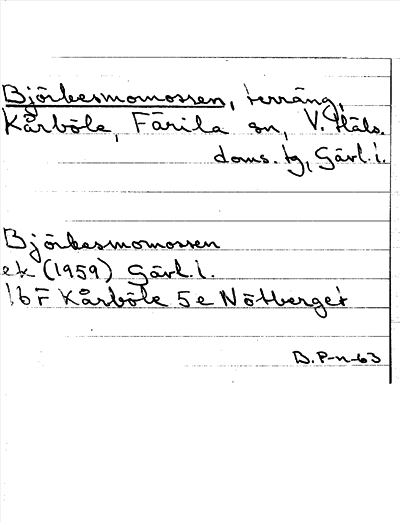 Björkesmomossen, terräng,
Kårböle, Färila sn, V. Häls.
doms. tg, Gävl. l.
Björkesmomossen
ek (1959) Gävl. l.
16 F Kårböle 5 e Nötberget
B. P-n-63